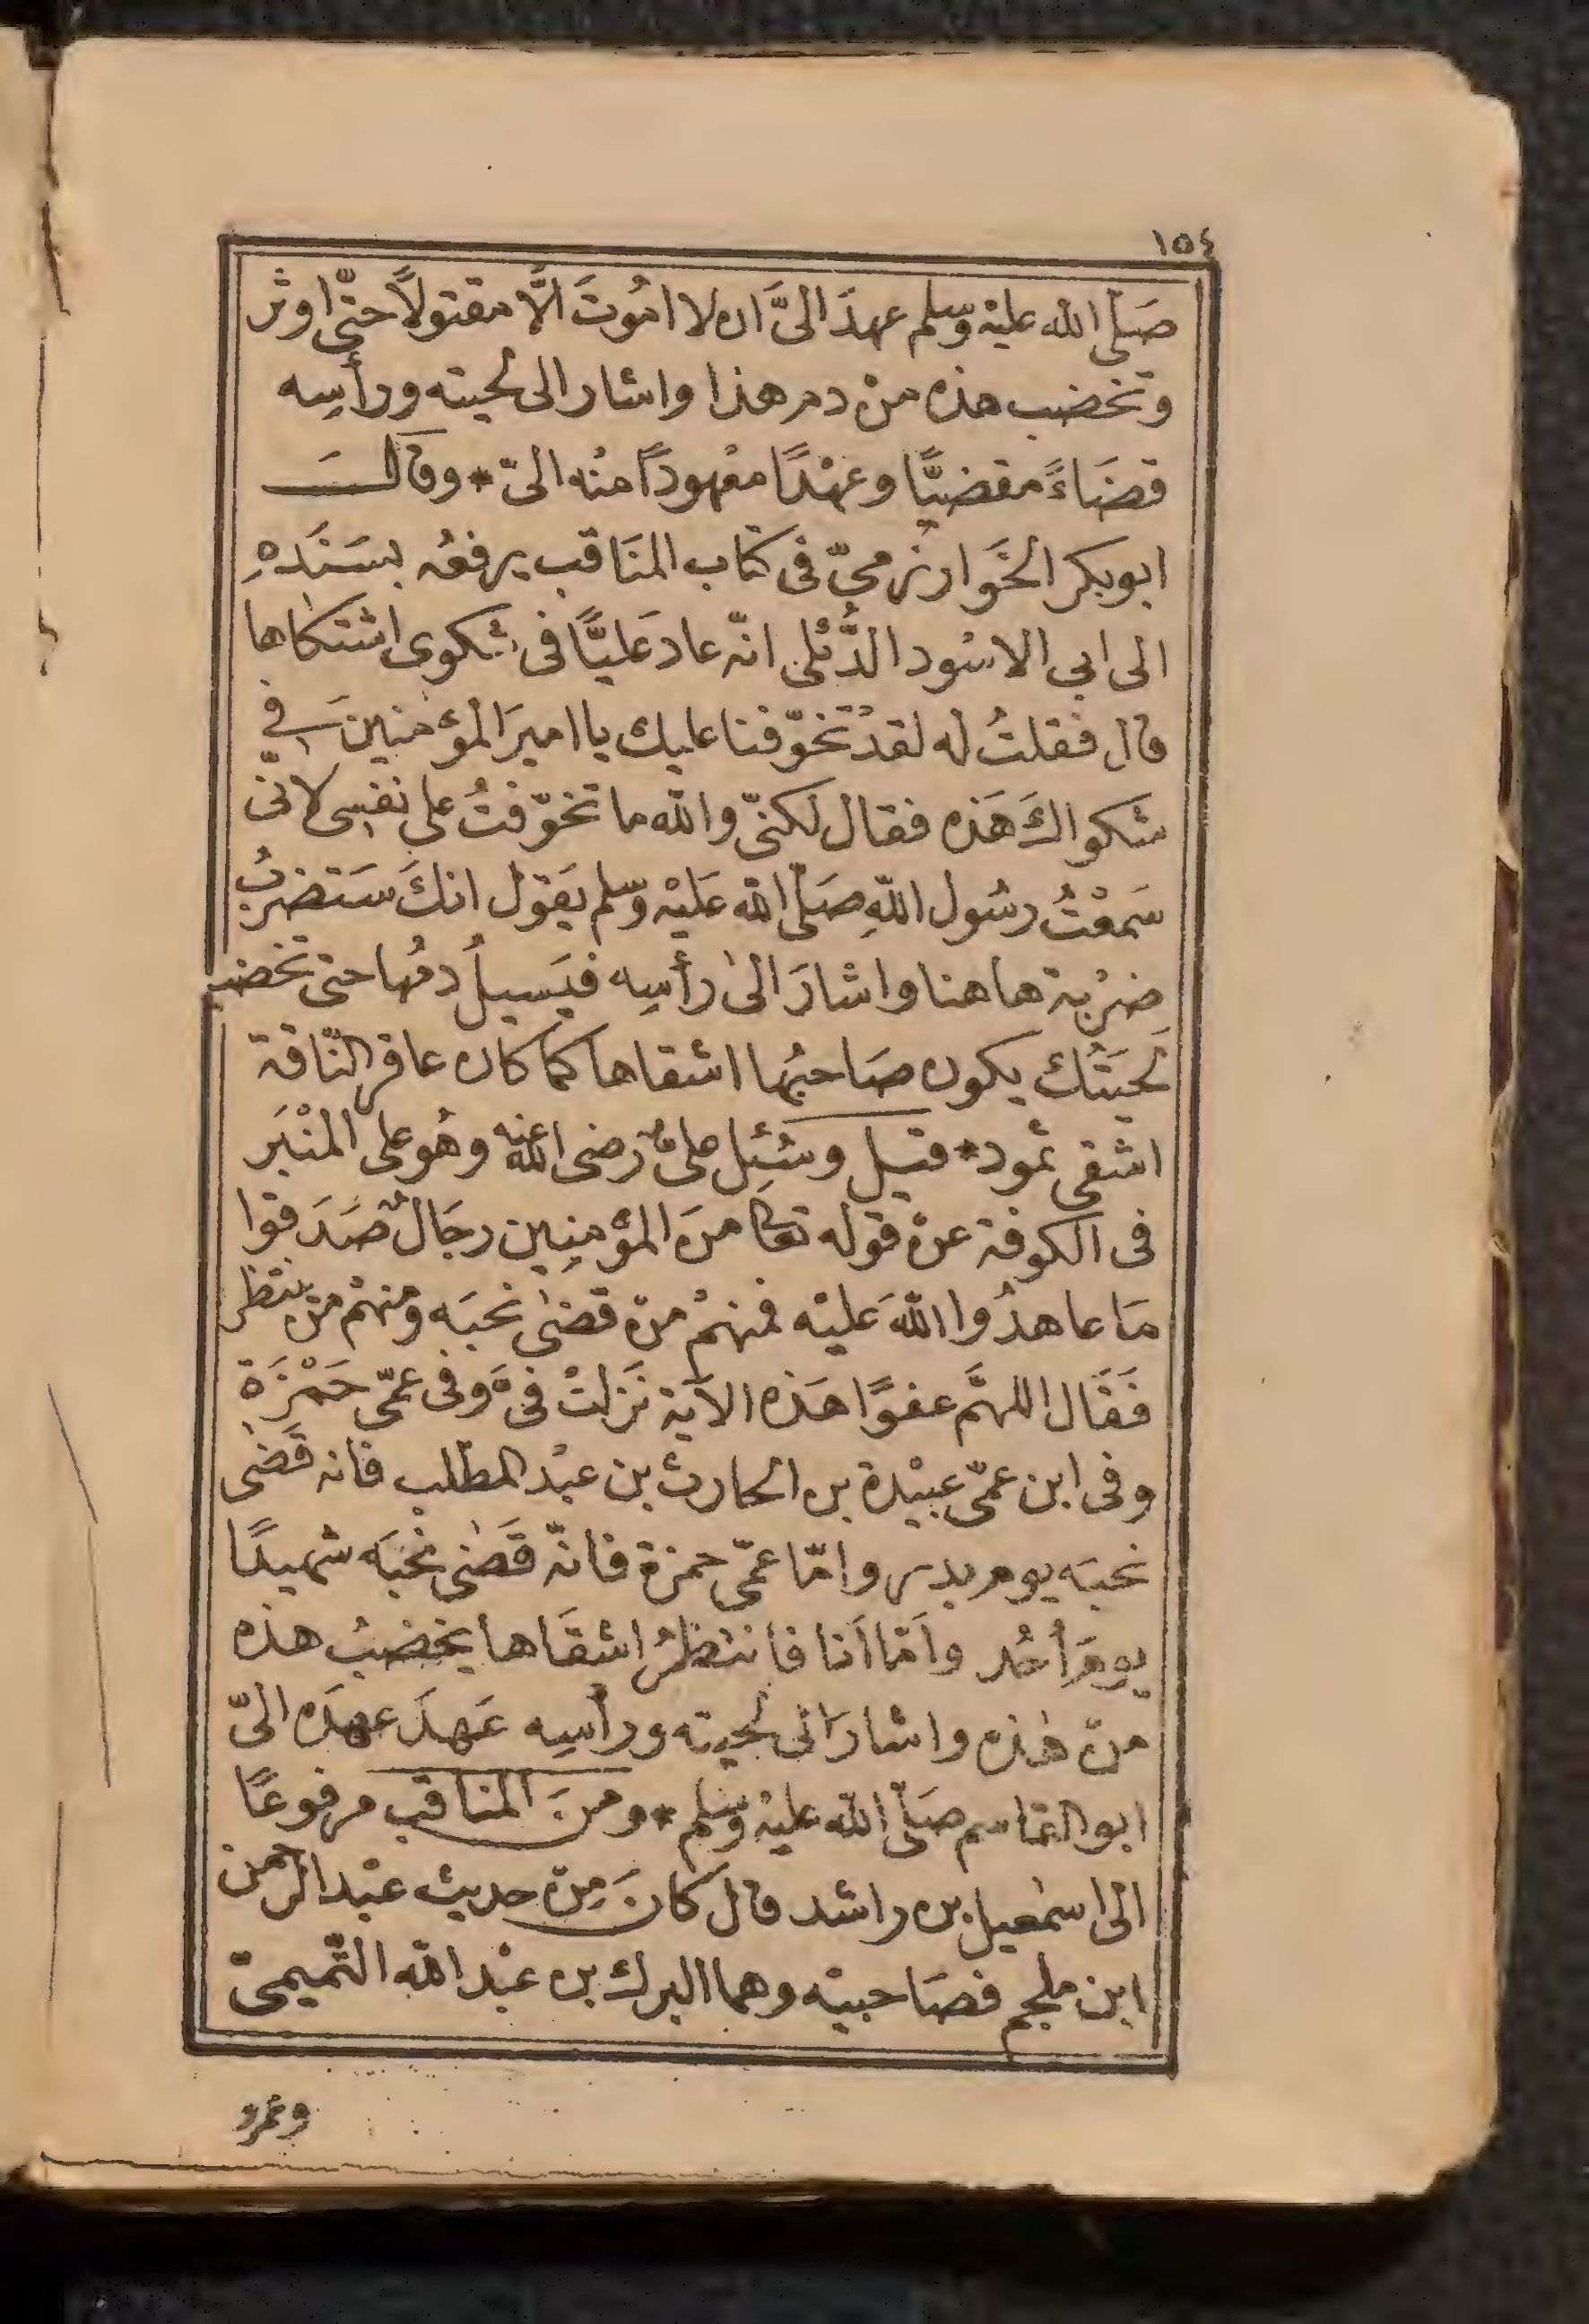 ١٥٤
صَلّى الله عليْه وسّلم عهدَ الىَّ ان لا امُوتَ الَّا مقتولاً حتّى اوثر
وتخضب هذه منْ دم هذا واشار الى لحيته ورأسِه
قضَاءً مقضيًّا وعهْدًا معْهودًا منْه الىّ * وقالَ
ابوبكر الخَوارزميّ فى كتاب المنَاقب يرفعُه بسَنَدهِ
الى ابي الاسْود الدُّئلى انّه عادَ عَليًّا فى شكوى اشتكاها
قال فقلتُ له لقدْ تخوّفنا عليك يا اميرَ المؤمنينَ في
شكواكَ هَذه فقال لكنّى والله ما تخوّفتُ على نفسى لانّى
سَمعْتُ رسُول اللهِ صَلّى الله عَليْه وسّلم يَقول انكَ سَتضربُ
ضرْبة هاهنا واشارَ الىٰ رأسِه فيَسيلُ دمُها حتى تخضب
لَحيَتُك يكون صَاحبُها اشقاها كما كان عاقر النّاقة
اشقى ثمود * قيل وسُئِل علىٌّ رضى الله عنه وهُو على المنْبَر
فى الكوفة عنْ قوله تعا منَ المؤمنِين رجَالٌ صَدَقوا
مَا عاهدُوا اللهَ عليْه فمنهمْ منْ قضىٰ نحبَه ومنهمْ منْ ينتظر
فَقَال اللهمَّ عفوًا هَذه الآية نَزلتْ فىَّ وفى عمّى حَمْزَة
وفى ابن عمّى عبيْدة بن الحارث بن عبْد المطّلب فانه قَضىٰ
نحبَه يوم بدر وامّا عمّى حمزة فانّه قَضىٰ نحْبَه شهيدًا
يومَ أحُد وأمّا أنا فانتظرُ اشقَاها يخضبُ هذه
منْ هٰذه واشارَ الى لحيته ورأسِه عَهدَ عهدَه الىّ
ابو القاسم صَلّى الله عليْه وسّلم * ومنَ المناقب مرفوعًا
الى اسمٰعيل بن راشد قالَ كانَ مِنْ حديث عبْد الرحمن
ابن ملجم فصَاحبيْه وهما البرك بن عبْد الله التّميمىّ
وعمرو